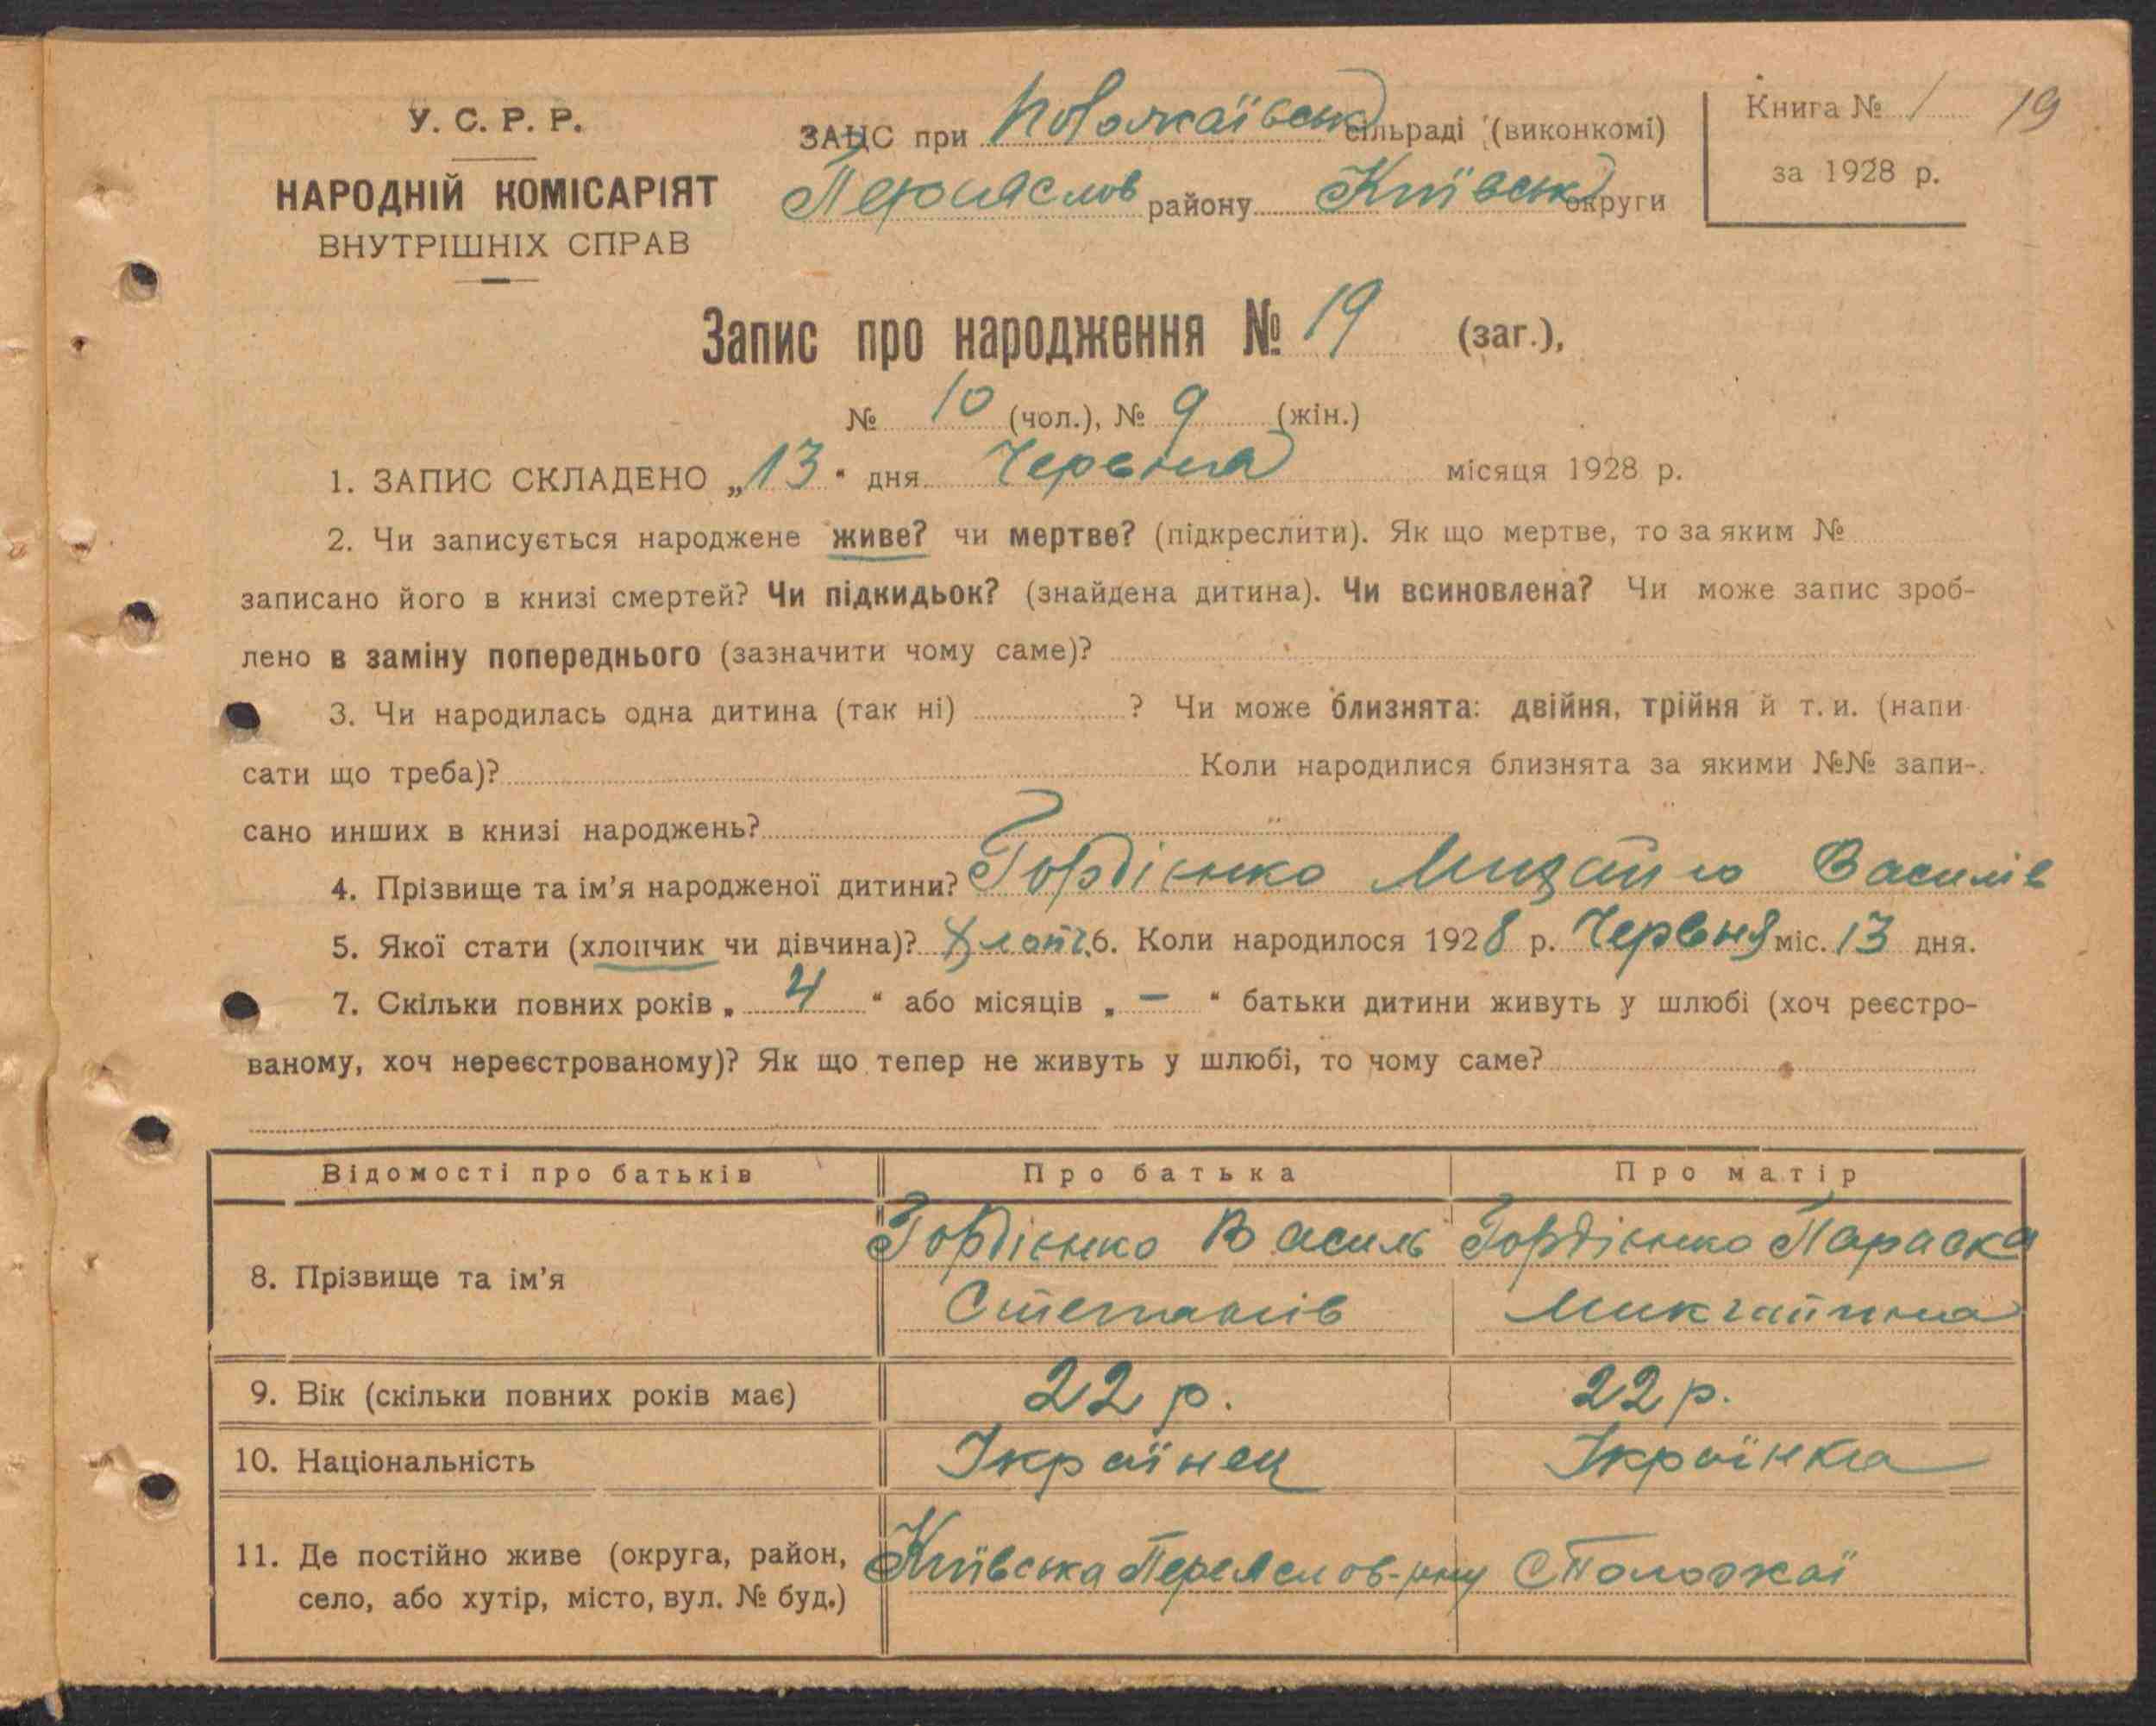 У. С. Р. Р.
НАРОДНІЙ КОМІСАРІЯТ
ВНУТРІШНІХ СПРАВ
ЗАЦС при сільраді (виконкомі)
Переяслов району Київськ округи
Книга № 1
за 1928 р.
19
Запис про народження № 19 (заг.),
№ 10 (чол.), № 9 (жін.)
1. ЗАПИС СКЛАДЕНО „13" дня Червня місяця 1928 р.
2. Чи записується народжене живе? чи мертве? (підкреслити). Як що мертве, то за яким №
записано його в книзі смертей? Чи підкидьок? (знайдена дитина). Чи всиновлена? Чи може запис зроб-
лено в заміну попереднього (зазначити чому саме)?
3. Чи народилась одна дитина (так ні) ? Чи може близнята: двійня, трійня й т. и. (напи
сати що треба)? Коли народилися близнята за якими №№ запи-
сано инших в книзі народжень?
4. Прізвище та ім'я народженої дитини? Гордієнко Василів
5. Якої стати (хлопчик чи дівчина)? Хлопч. 6. Коли народилося 1928 р. Червня міс. 13 дня.
7. Скільки повних років „ 4 " або місяців „ — " батьки дитини живуть у шлюбі (хоч реєстро-
ваному, хоч нереєстрованому)? Як що тепер не живуть у шлюбі, то чому саме?
Відомості про батьків Про батька Про матір
8. Прізвище та ім'я Гордієнко Василь Гордієнко Параска
Степанів
9. Вік (скільки повних років має) 22 р. 22 р.
10. Національність Українец Українка
11. Де постійно живе (округа, район, Київська Переяслов-
село, або хутір, місто, вул. № буд.)